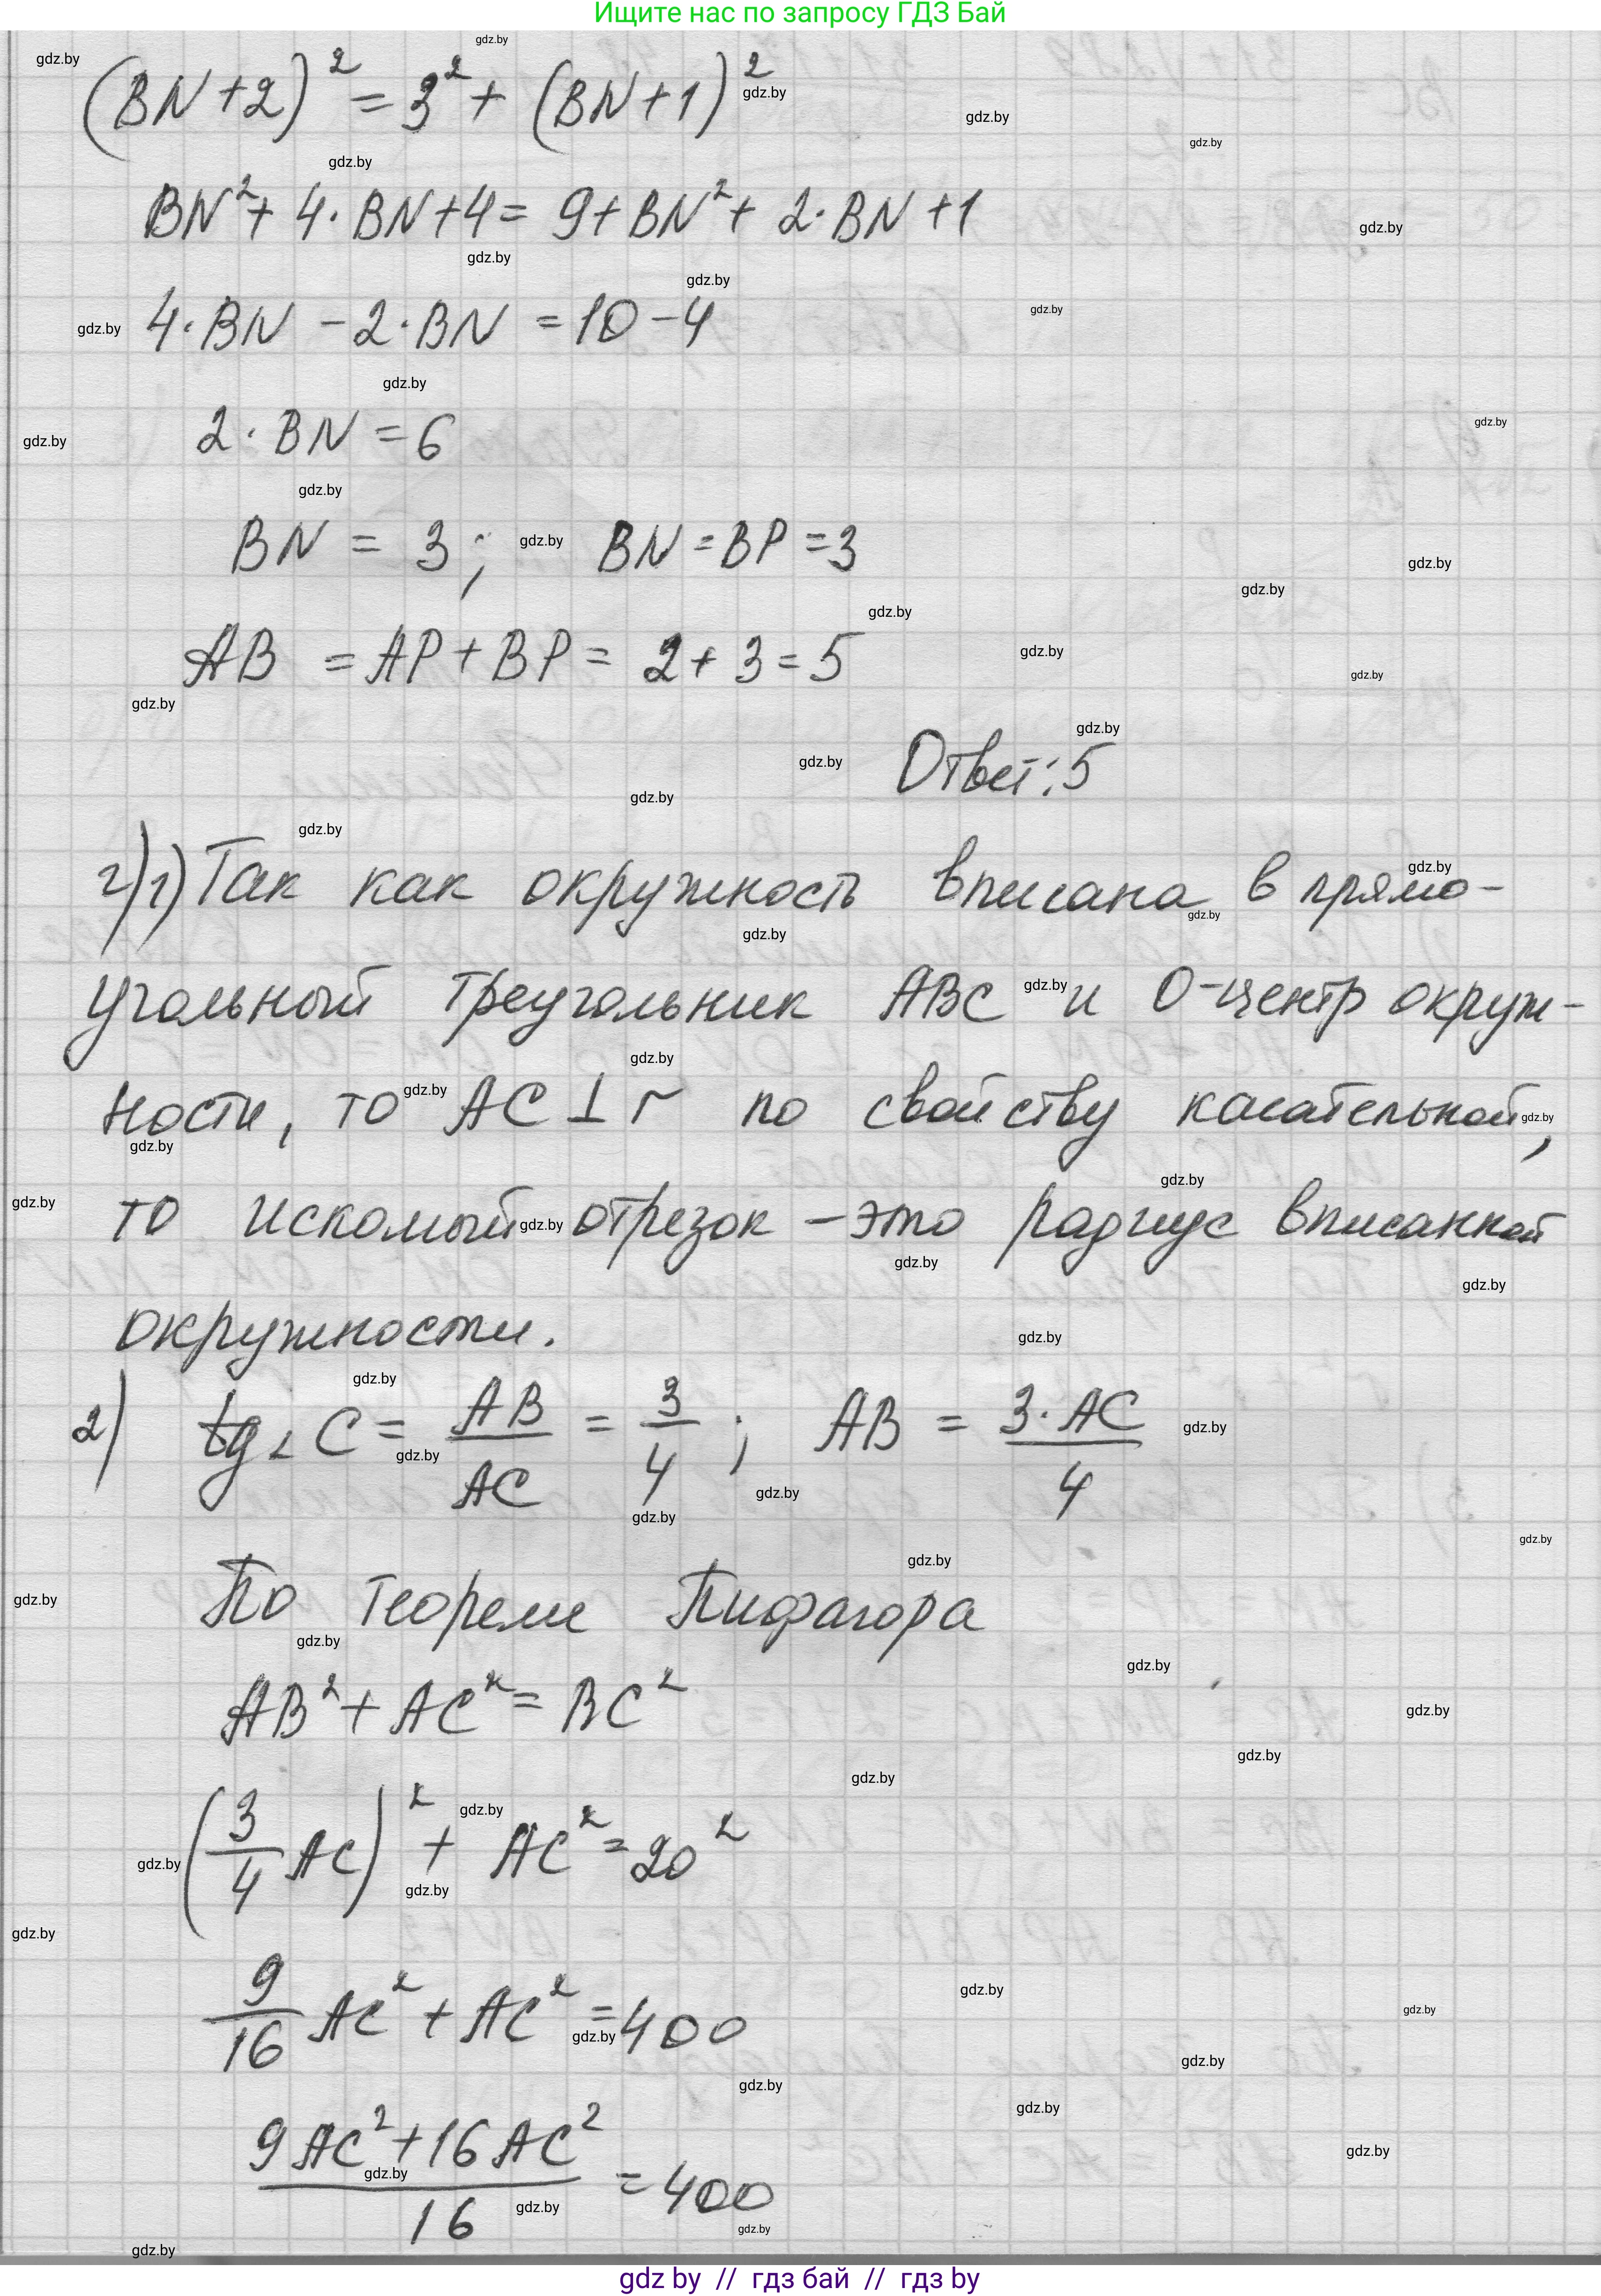 Ищите нас по запросу ГДЗ Бай
(BN+2)² = 3² + (BN+1)²
BN² + 4·BN+4 = 9+BN² + 2·BN+1
4·BN − 2·BN = 10−4
2·BN = 6
BN = 3; BN = BP = 3
AB = AP + BP = 2 + 3 = 5
Ответ: 5
г) 1) Так как окружность вписана в прямо-
угольный треугольник ABC и O-центр окруж-
ности, то AC ⊥ r по свойству касательной,
то искомый отрезок – это радиус вписанной
окружности.
2) tg∠C = AB/AC = 3/4; AB = 3·AC/4
По теореме Пифагора
AB² + AC² = BC²
(3/4 AC)² + AC² = 20²
9/16 AC² + AC² = 400
(9AC² + 16AC²)/16 = 400
gdz by // гдз бай // гдз by